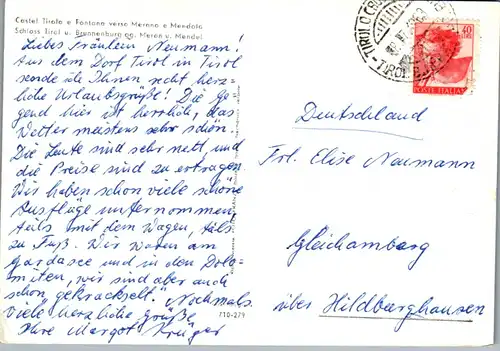 Castel Tirolo e Fontana verso Merano e Mendola
Schloss Tirol u. Brunnenburg gg. Meran u. Mendel
Liebes Fräulein Neumann!
Aus dem Dorf Tirol in Tirol
sende ich Ihnen recht herz-
liche Urlaubsgrüße! Die Ge-
gend hier ist herrlich, das
Wetter meistens sehr schön
Die Leute sind sehr nett und
die Preise sind zu ertragen.
Wir haben schon viele schöne
Ausflüge unternommen,
teils mit dem Wagen, teils
zu Fuß. Wir waren am
Gardasee und in den Dolo-
miten, wir sind aber auch
schon gekraxelt. Nochmals
viele herzliche Grüße
Ihre Margot Krüger
710-279
TIROLO
TIROL
40
POSTE ITALIANE
Deutschland
Frl. Elise Neumann
Gleichamberg
über Hildburghausen